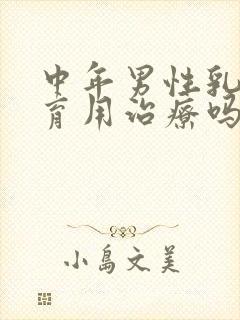 中年男性乳
育用治疗吗
小島文美